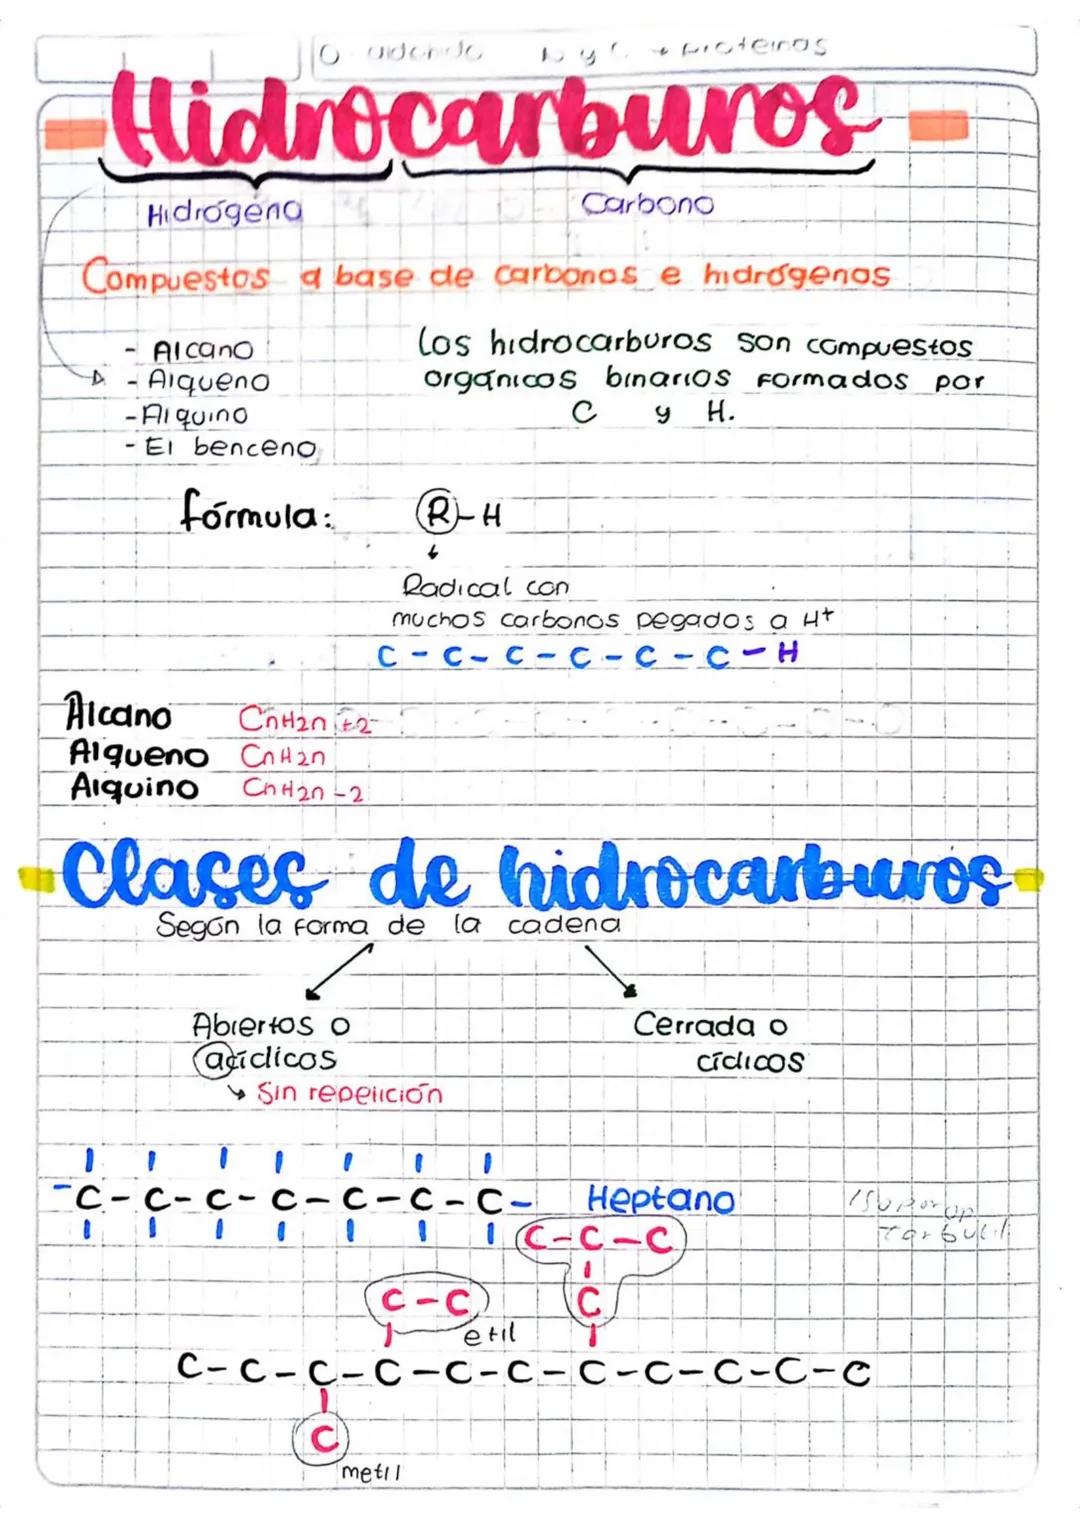 proteinas
Hidrocarburos
Hidrógeno Carbono
Compuestos a base de carbonos e hidrógenos
- Alcano
- Alqueno
- Alquino
- El benceno
Los hidrocarburos son compuestos
orgánicos binarios formados por
C y H.
fórmula: R-H
Radical con
muchos carbonos pegados a H+
C - C - C - C - C - C - H
Alcano CnH2n+2
Alqueno CnH2n
Alquino CnH2n-2
Clases de hidrocarburos
Según la forma de la cadena
Abiertos o
acíclicos
Sin repetición
Cerrada o
cíclicos
-C-C-C-C-C-C-C- Heptano
C-C-C
C
C-C
etil
C-C-C-C-C-C-C-C-C-C-C
C
metil